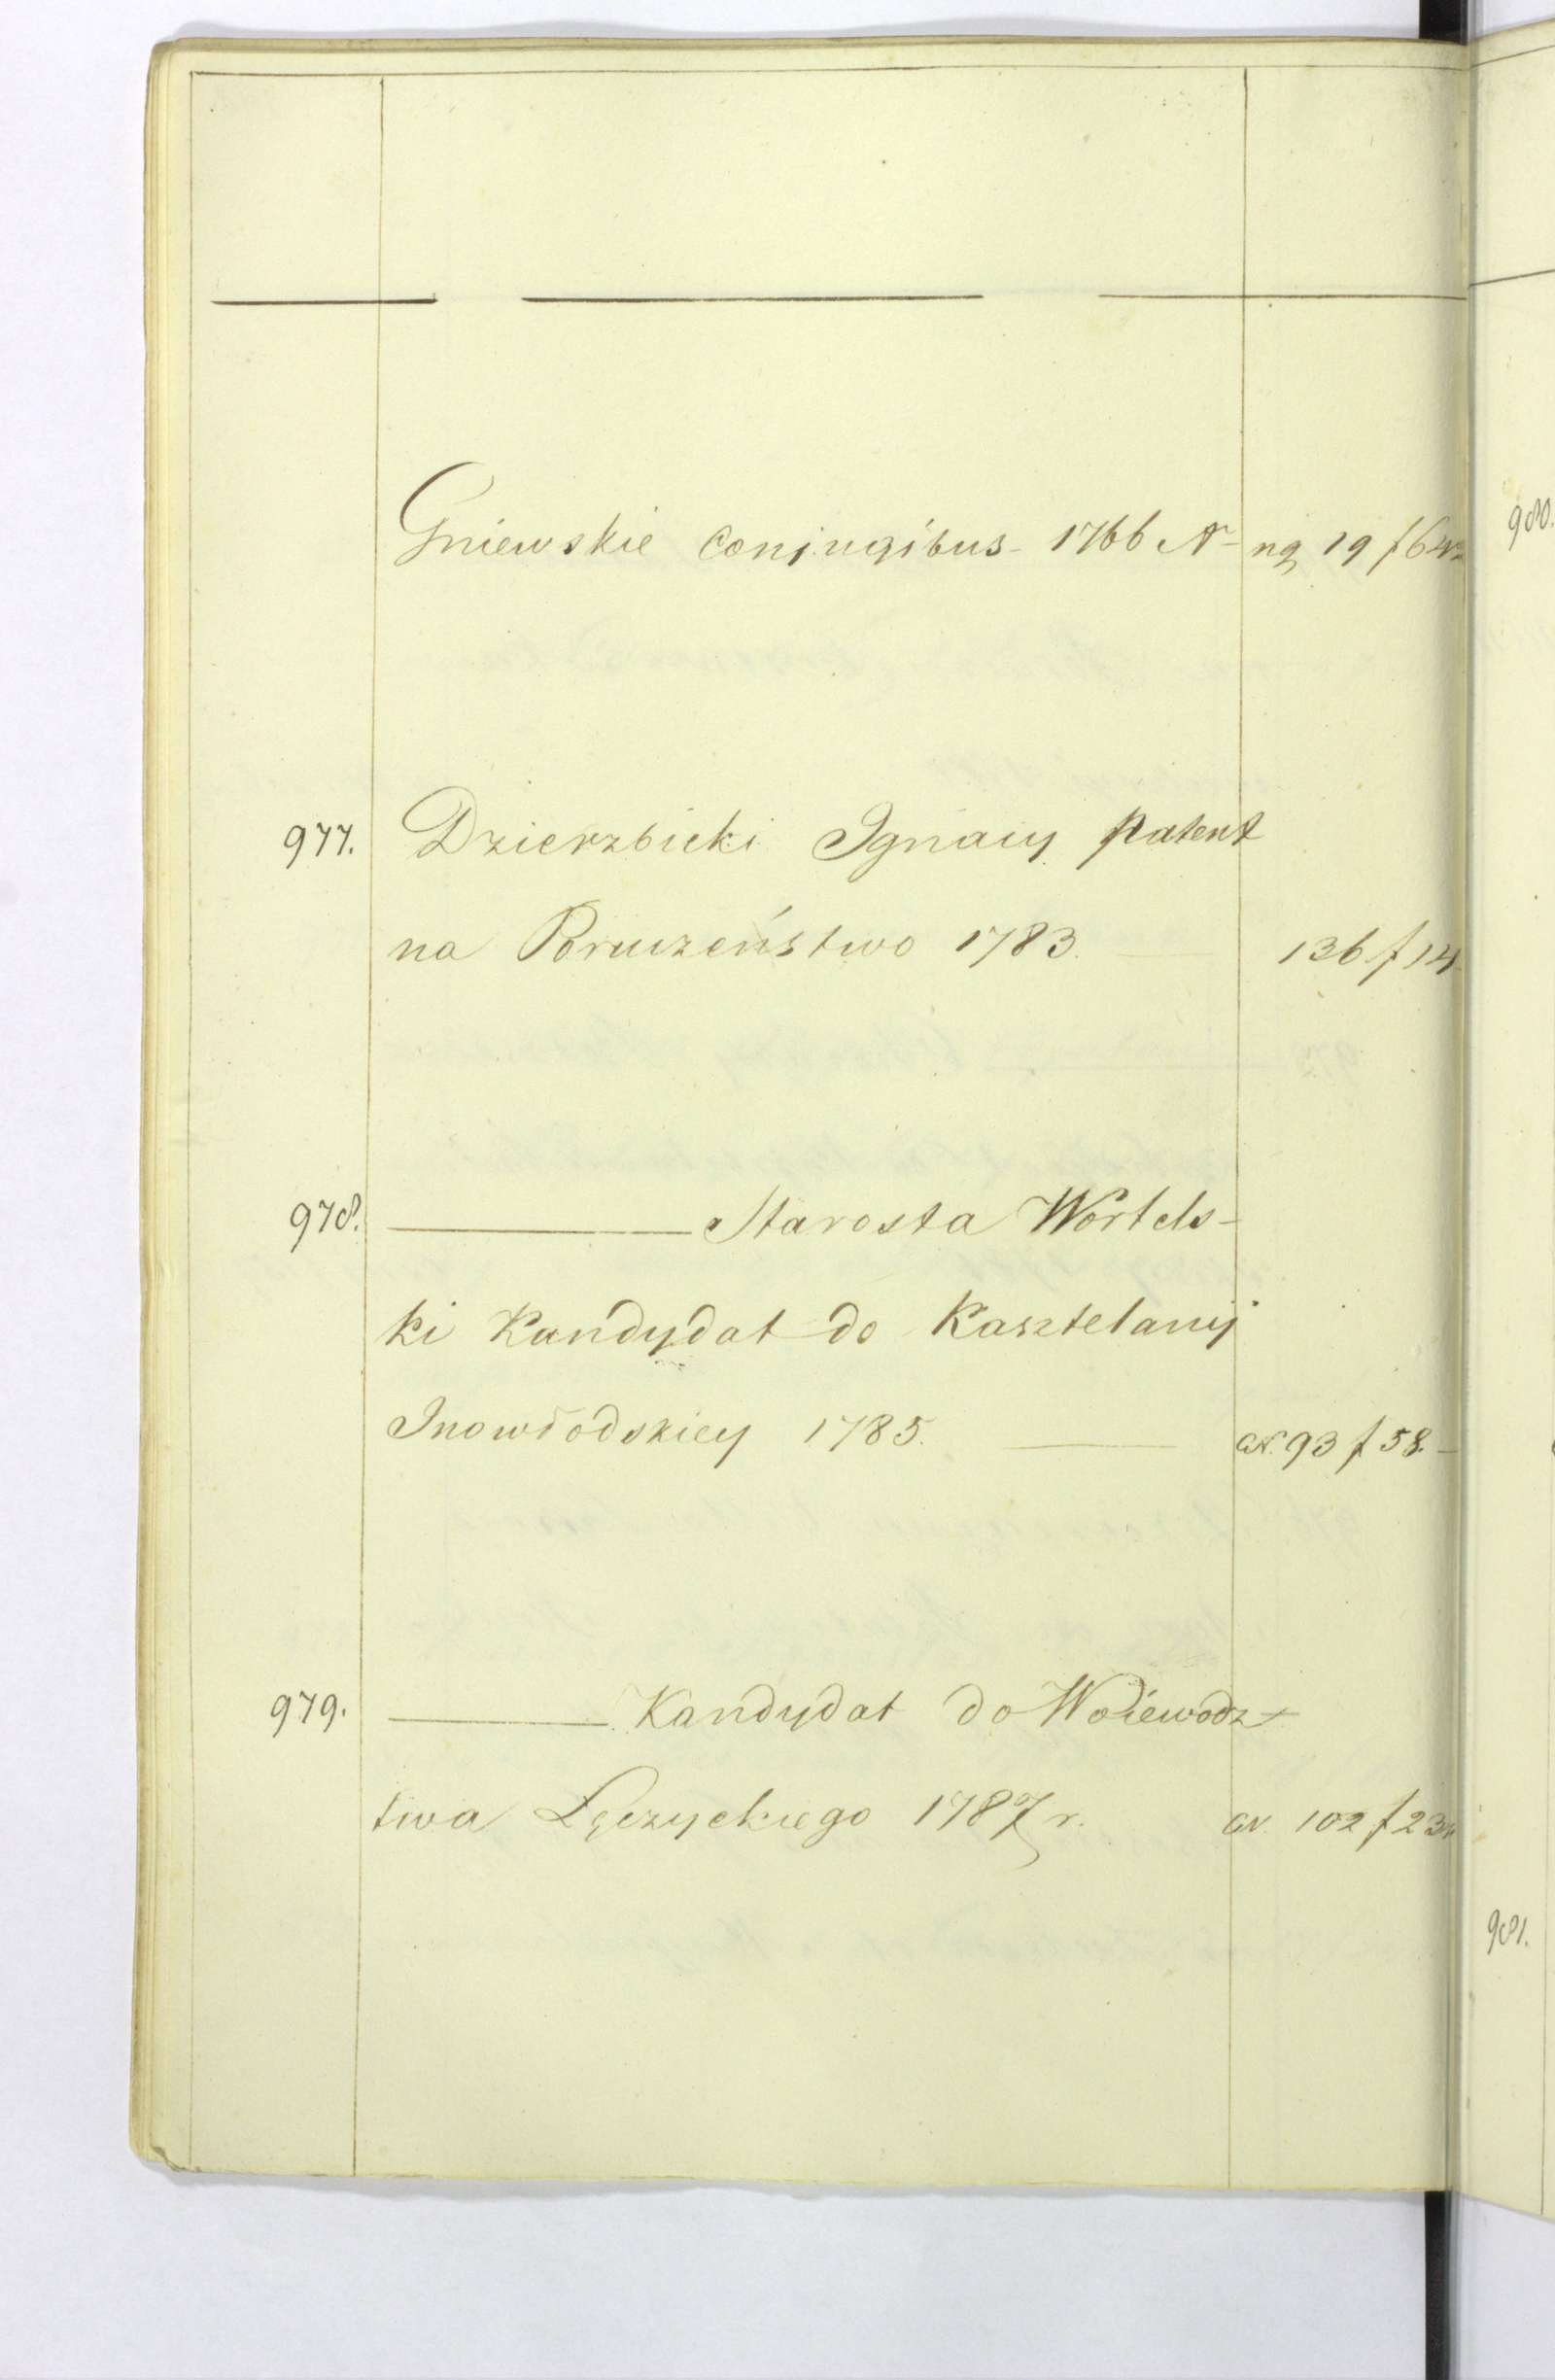 Gniewskie Conjugibus 1766 N- ng 19 f 64
977. Dzierzbicki Ignacy patent
na Poruczeństwo 1783. — 136 f 14
978. — Starosta Wortels-
ki Kandydat do Kasztelanij
Inowłodskiey 1785. — N. 93 f 58. —
979. — Kandydat do Woiewodz-
twa Łęczyckiego 1787 r. N. 102 f 23
980.
981.